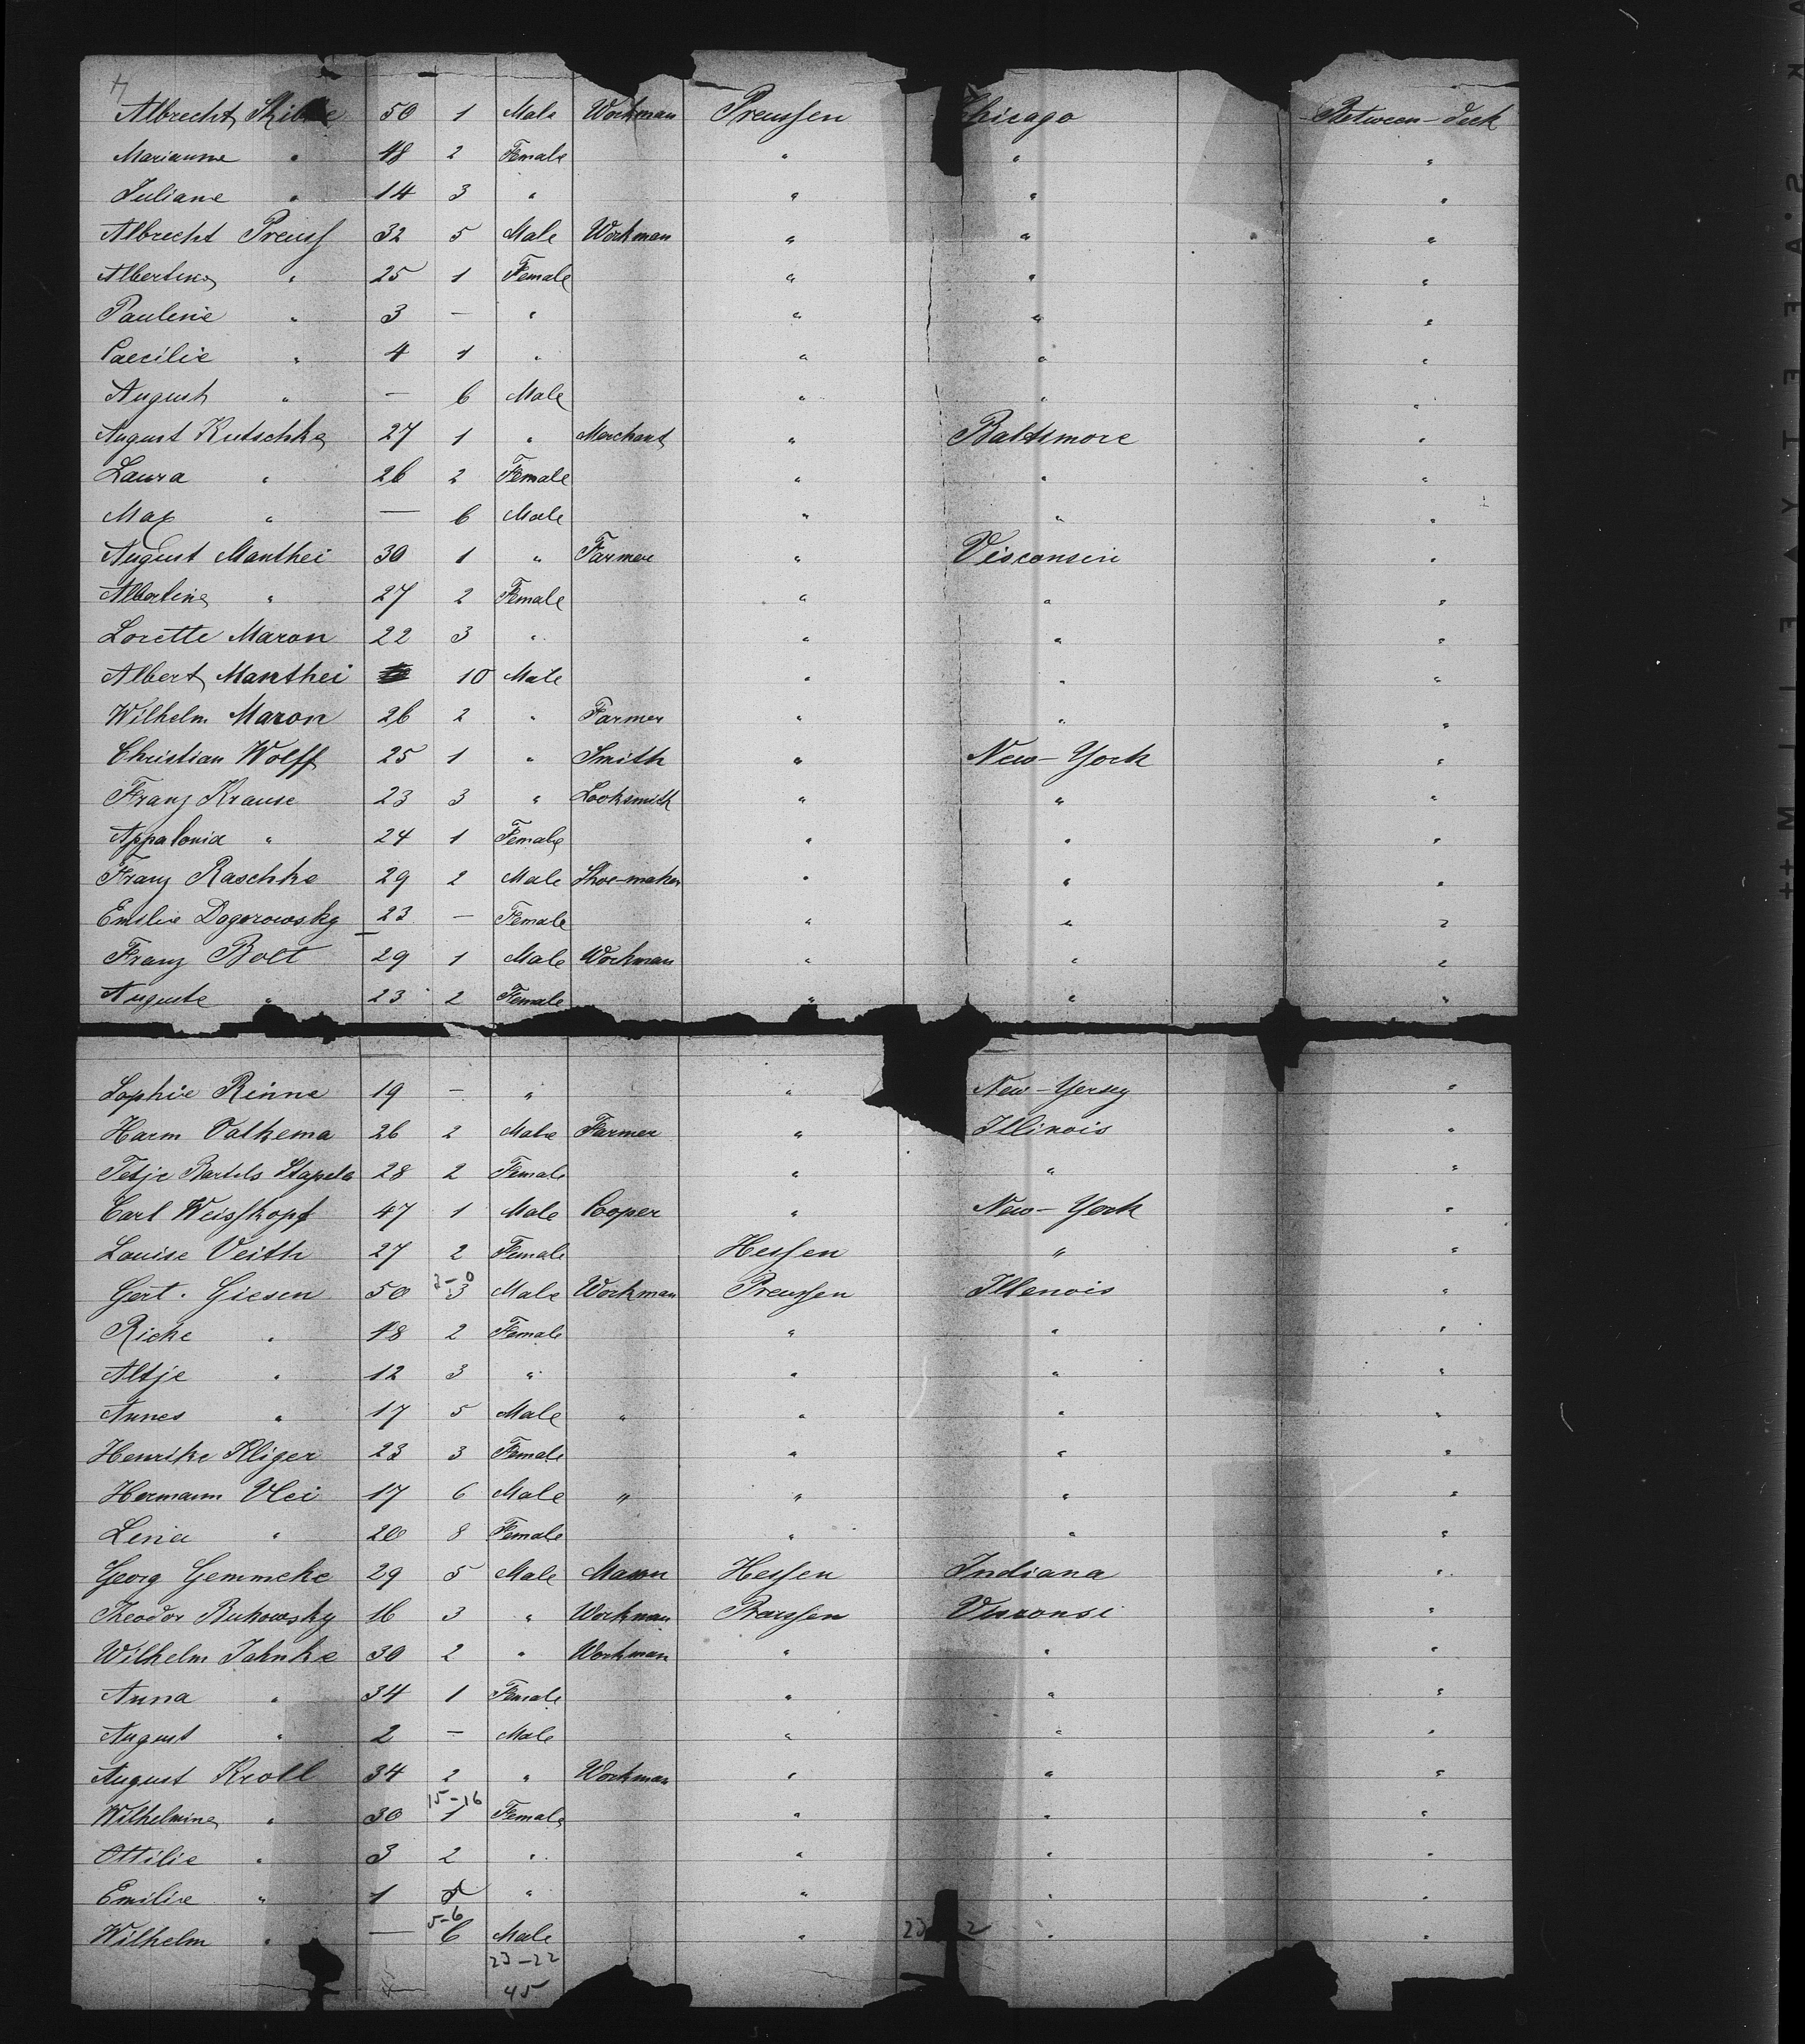 Albrecht 50 1 Male Workman Preussen Chicago Between-deck
Marianne " 48 2 Female " " "
Juliane " 14 3 " " " "
Albrecht Preuss 32 5 Male Workman " " "
Albertine " 25 1 Female " " "
Pauline " 3 — " " " "
Caecilie " 4 1 " " " "
August " — 6 Male " " "
August Kutschke 27 1 " Merchant " Baltimore "
Laura " 26 2 Female " " "
Max " — 6 Male " " "
August Manthei 30 1 " Farmer " Visconsin "
Albertine " 27 2 Female " " "
Lorette Maron 22 3 " " " "
Albert Manthei 10 Male " " "
Wilhelm Maron 26 2 " Farmer " " "
Christian Wolff 25 1 " Smith " New-York "
Franz Krause 23 3 " Locksmith " " "
Appalonia " 24 1 Female " " "
Franz Raschke 29 2 Male Shoe-maker " " "
Emilie Dogorowsky 23 — Female " " "
Franz Bolt 29 1 Male Workman " " "
Auguste " 23 2 Female " " "
Sophie Rinne 19 — " " New-Yersey "
Harm Valkema 26 2 Male Farmer " Illinois "
Tetje Bartels Stapela 28 2 Female " " "
Carl Weisskopf 47 1 Male Cooper " New-York "
Louise Veith 27 2 Female Hessen " "
Gert. Giesen 50 3 Male Workman Preussen Illenois "
Ricke " 48 2 Female " " "
Altje " 12 3 " " " "
Annes " 17 5 Male " " " "
Henrike Kliger 23 3 Female " " "
Hermann Vlei 17 6 Male " " " "
Lena " 20 8 Female " " "
Georg Gemmeke 29 5 Male Mason Hessen Indiana "
Theodor Bukowsky 16 3 " Workman Preussen Visconsi "
Wilhelm Jahnke 30 2 " Workman " " "
Anna " 34 1 Female " " "
August " 2 — Male " " "
August Kroll 34 2 " Workman " " "
15-16
Wilhelmine " 30 1 Female " " "
Ottilie " 3 2 " " " "
Emilie " 1 " " " "
5-6
Wilhelm " — 6 Male " " "
23-22
45